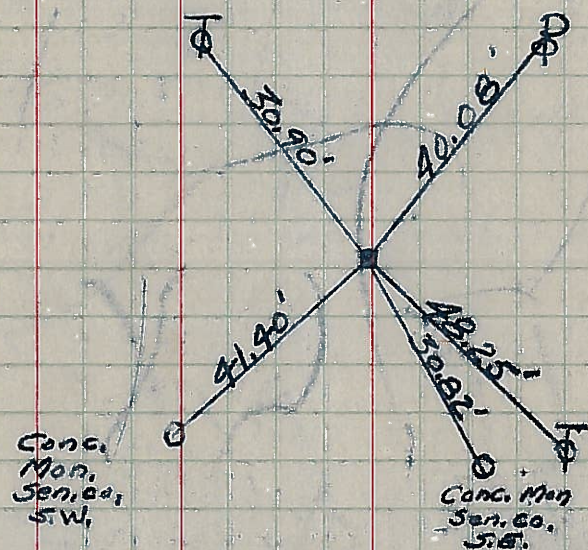 T
P
30.90'
40.08'
41.40'
48.25'
30.82'
T
Conc.
Mon.
Sen. Co.
S.W.
Conc. Mon
Sen. Co.
S.E.